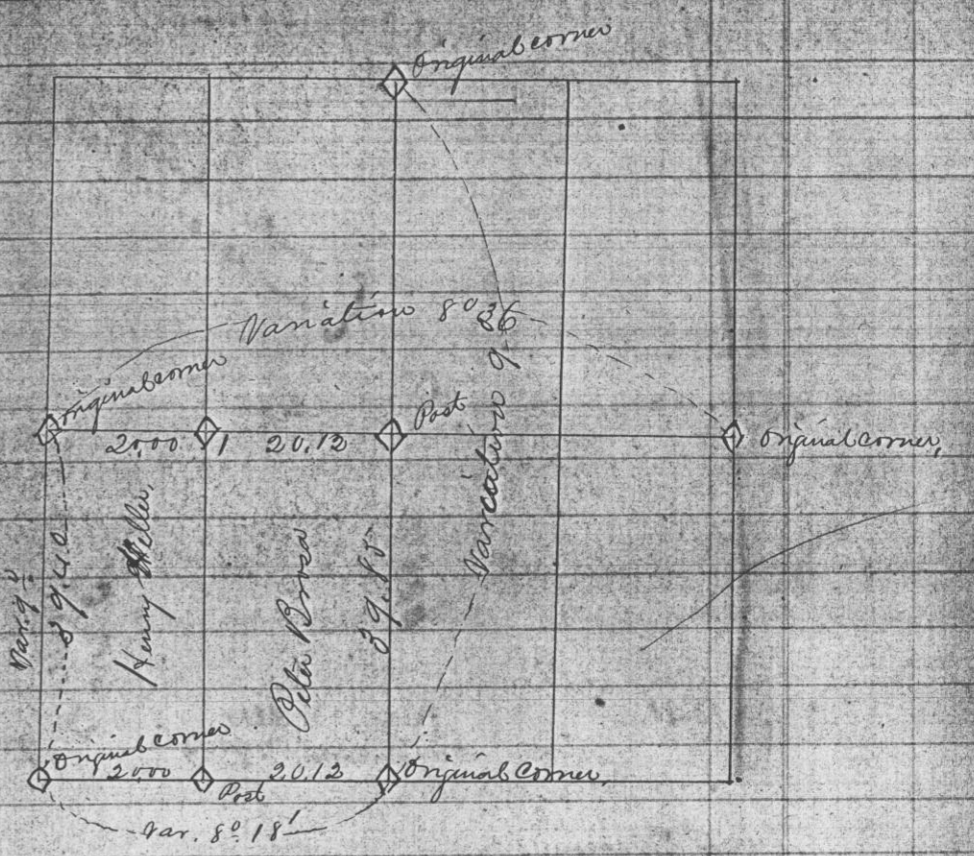 Original corner
Variation 8° 36
Original corner
Variation 9
Post
2,000 1 20.12
Original corner,
Var. 9°
39 40
Henry Heller,
Peter Bross
39.85
Original corner
2000 20.12 Original Corner,
Post
Var. 8° 18'